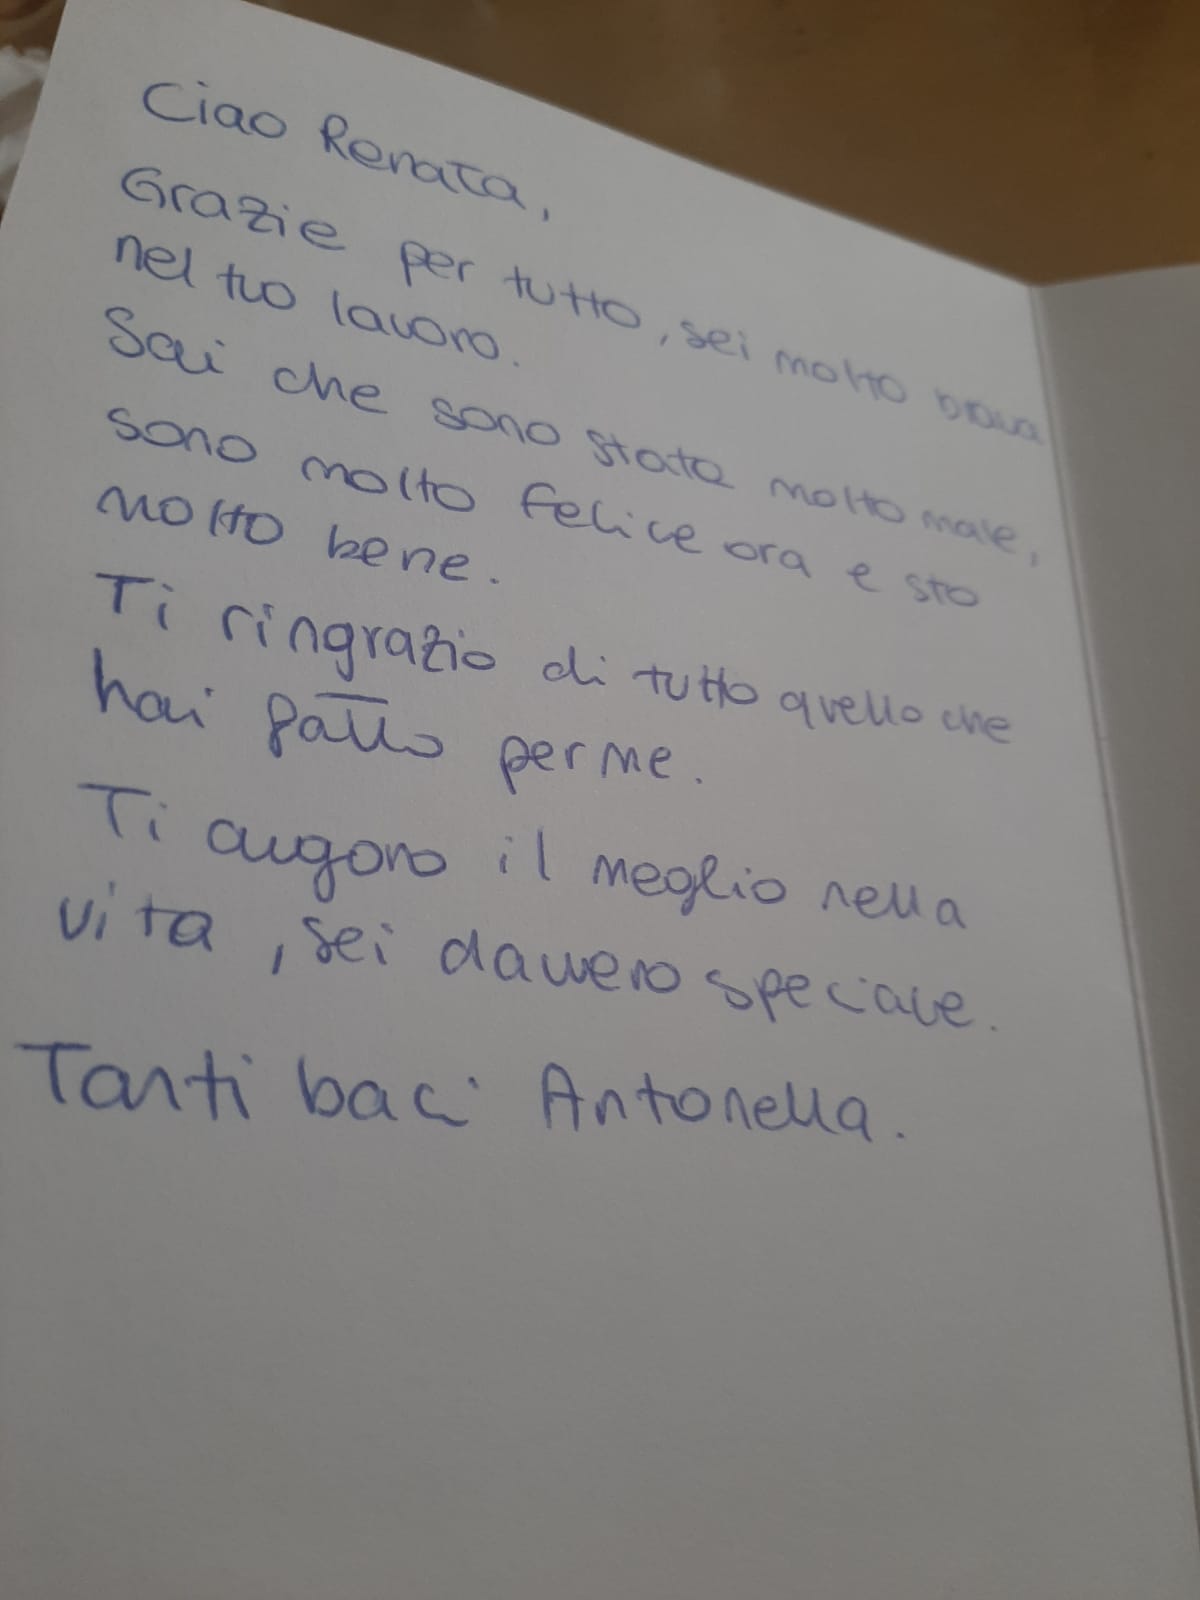 Ciao Renata,
Grazie per tutto, sei molto brava
nel tuo lavoro.
Sai che sono stata molto male,
sono molto felice ora e sto
molto bene.
Ti ringrazio di tutto quello che
hai fatto per me.
Ti auguro il meglio nella
vita, sei davvero speciale.
Tanti baci Antonella.